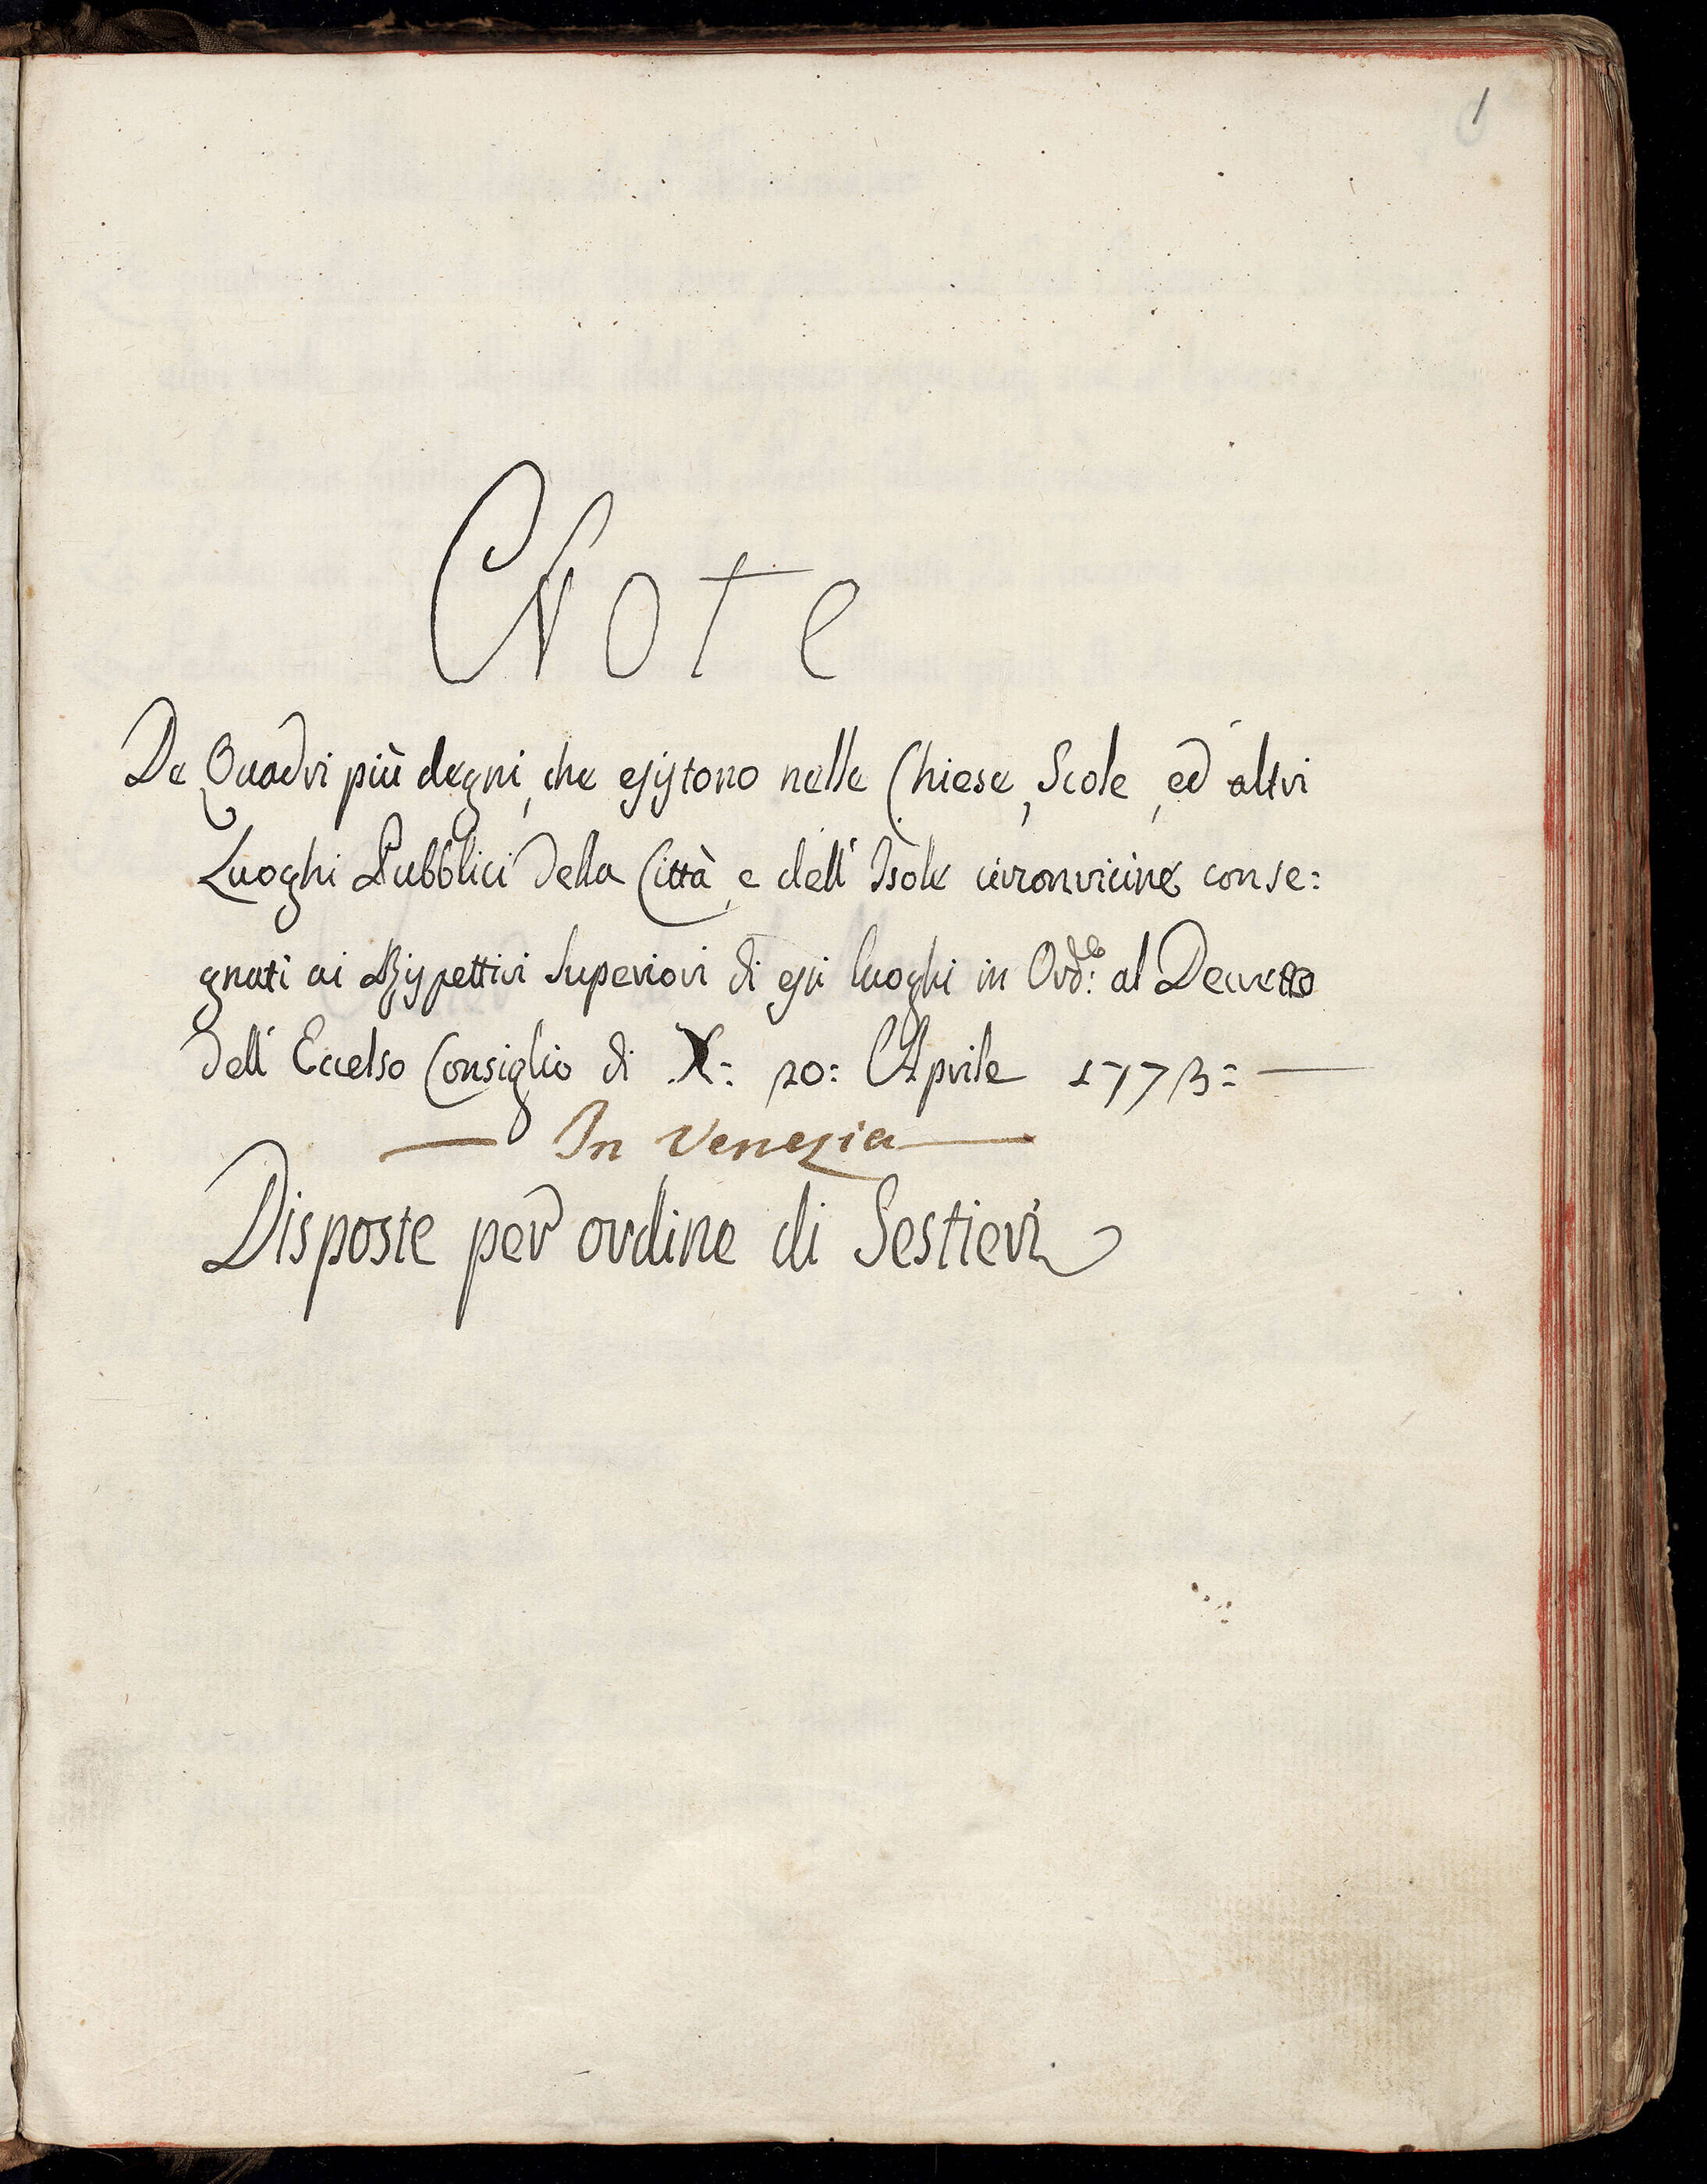 1
Note
De Quadri più degni, che esistono nelle Chiese, Scole, ed altri
Luoghi Pubblici della Città, e dell' Isole circonvicine conse:
gnati ai Rispettivi Superiori di essi luoghi in Ord: al Decretto
dell' Eccelso Consiglio di X: 20: Aprile 1773:
In Venezia
Disposte per ordine di Sestieri